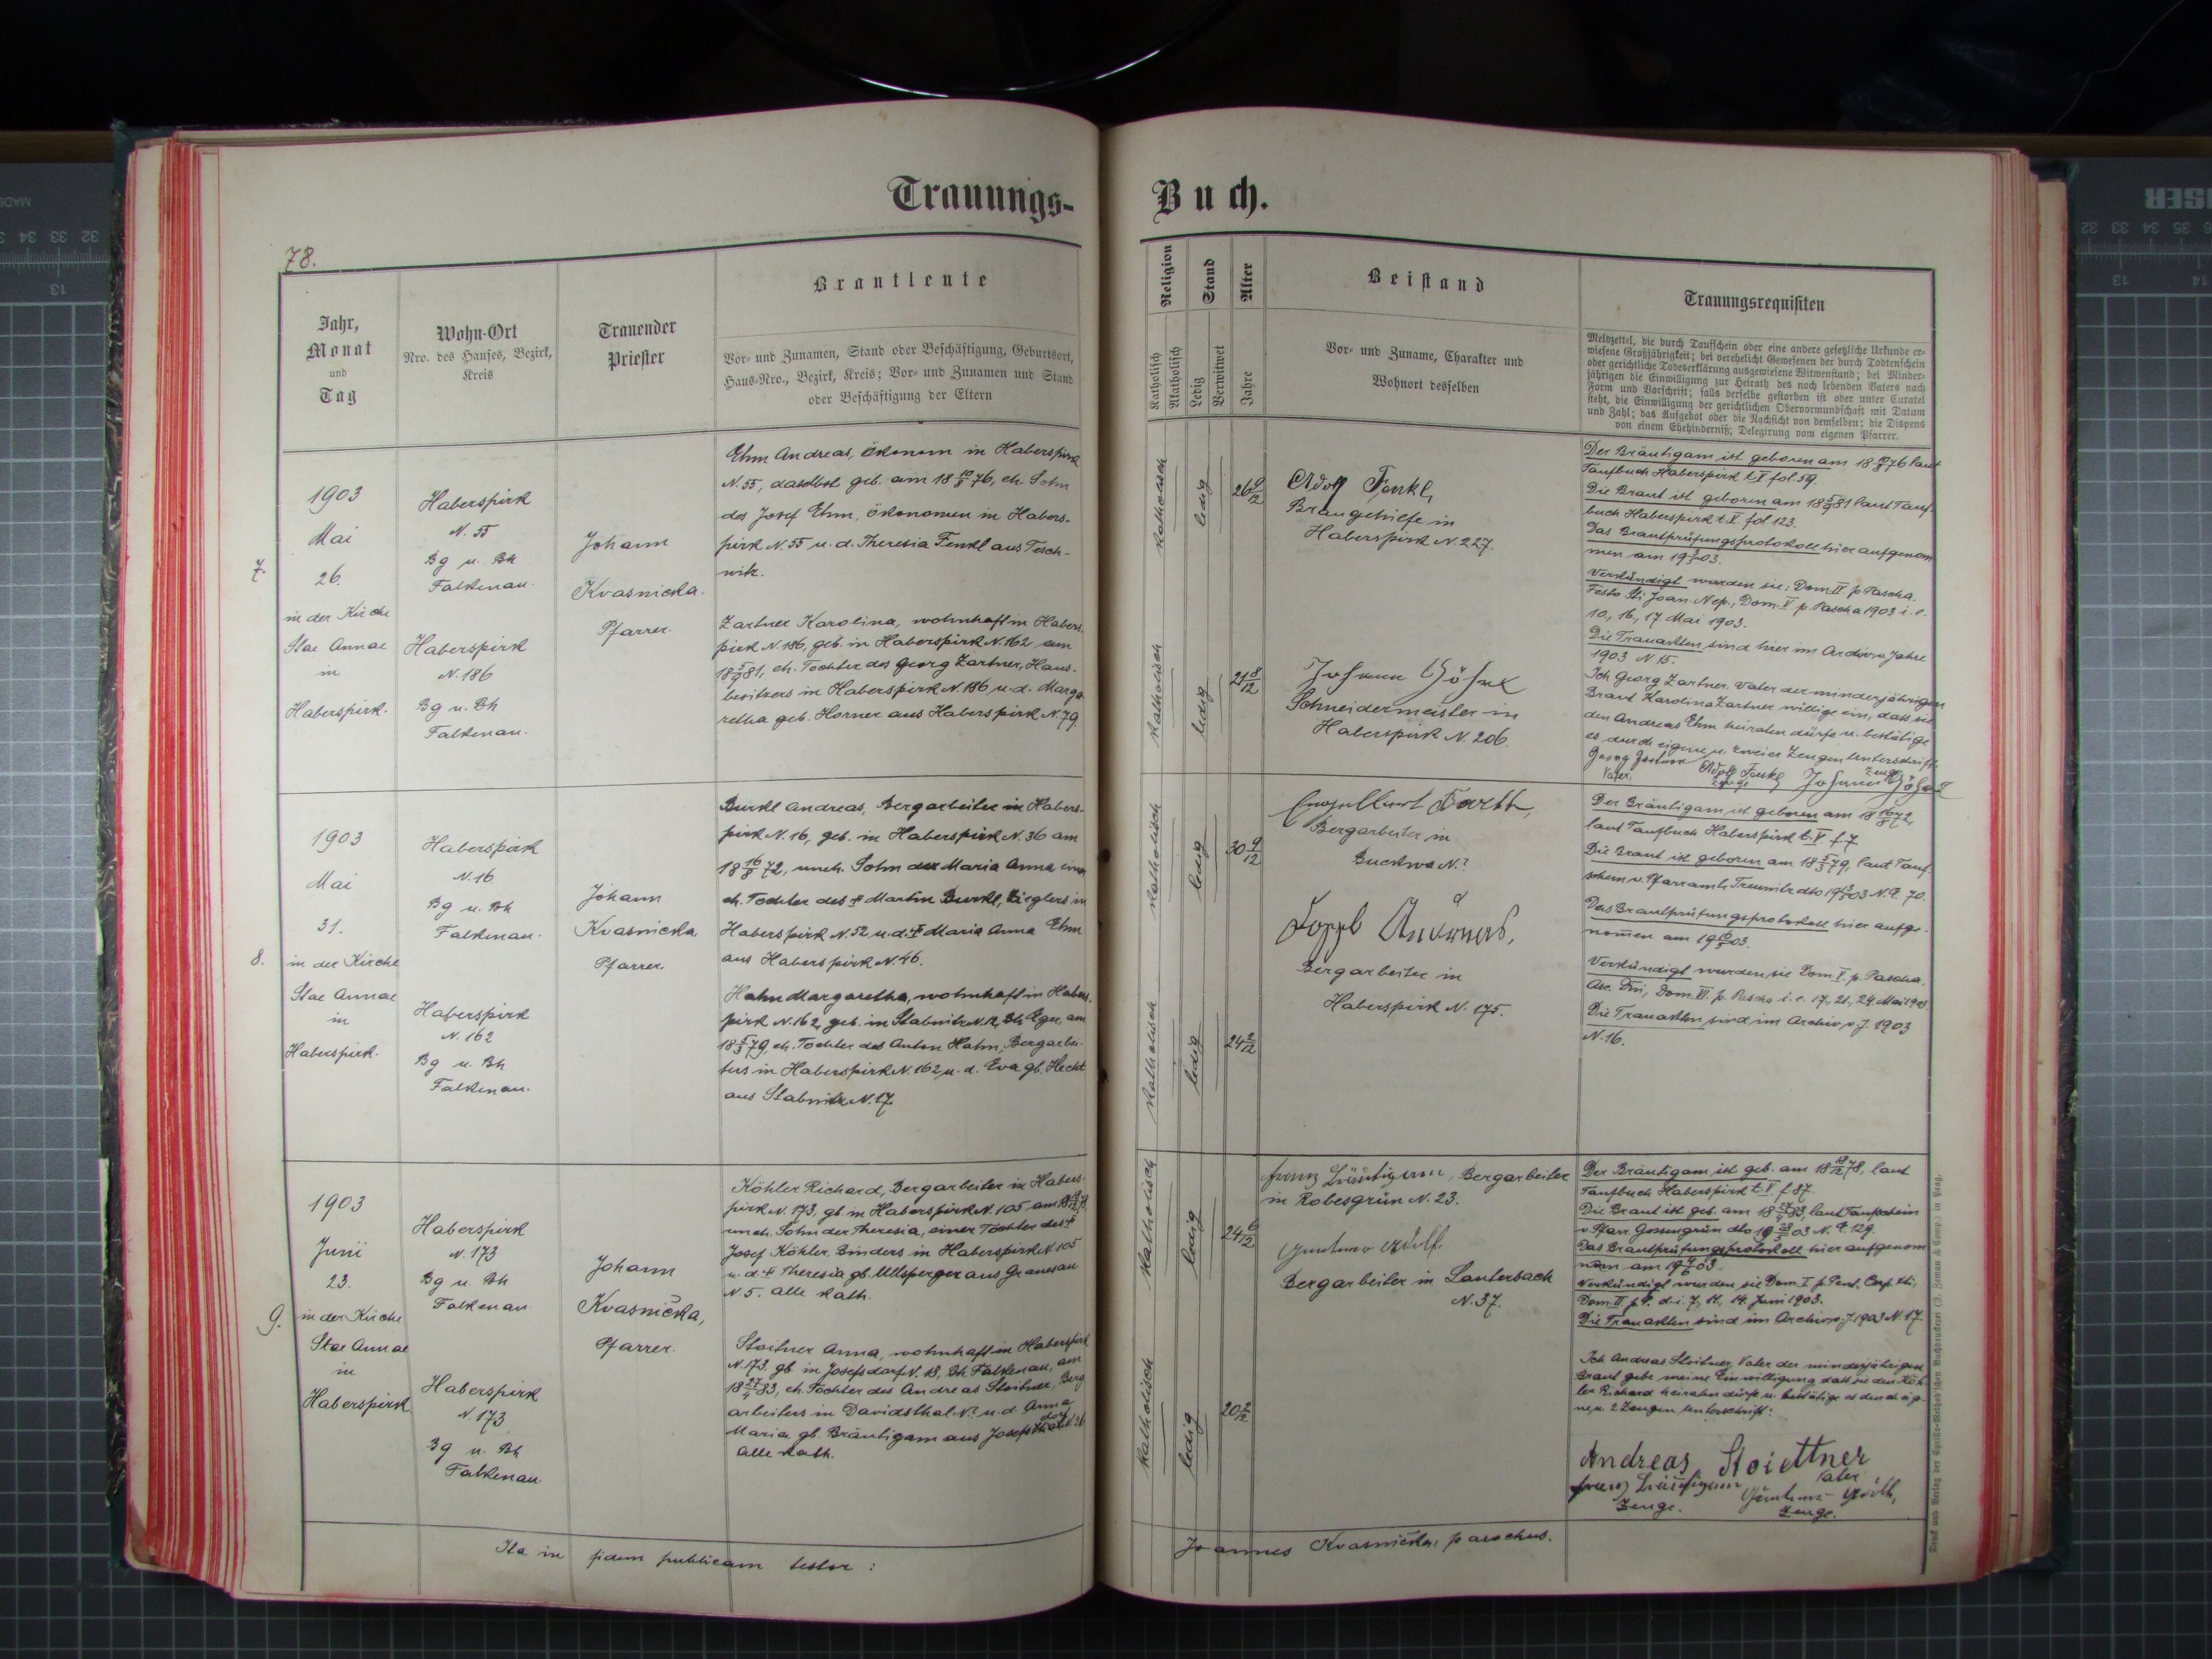 Trauungs-
Buch.
78.
Jahr,
Monat
und
Tag
Wohn-Ort
Nro. des Hauses, Bezirk,
Kreis
Trauender
Priester
Brautleute
Vor- und Zunamen, Stand oder Beschäftigung, Geburtsort,
Haus-Nro., Bezirk, Kreis; Vor- und Zunamen und Stand
oder Beschäftigung der Eltern
Religion
Katholisch
Akatholisch
Stand
Ledig
Verwitwet
Alter
Jahre
Beistand
Vor- und Zuname, Charakter und
Wohnort desselben
Trauungsrequisiten
Meldzettel, die durch Taufschein oder eine andere gesetzliche Urkunde er-
wiesene Großjährigkeit; bei verehelicht Gewesenen der durch Todtenschein
oder gerichtliche Todeserklärung ausgewiesene Witwenstand; bei Minder-
jährigen die Einwilligung zur Heirath des noch lebenden Vaters nach
Form und Vorschrift; falls derselbe gestorben ist oder unter Curatel
steht, die Einwilligung der gerichtlichen Obervormundschaft mit Datum
und Zahl; das Aufgebot oder die Nachsicht von demselben; die Dispens
von einem Ehehinderniß; Delegirung vom eigenen Pfarrer.
7.
1903
Mai
26.
in der Kirche
Stae Annae
in
Haberspirk.
Haberspirk
N. 55
Bg u. Bh
Falkenau.
Haberspirk
N. 186
Bg u. Bh
Falkenau.
Johann
Kvasnicka.
Pfarrer.
Ehm Andreas, Ökonom in Haberspirk
N. 55, daselbst geb. am 18 10/8 76, eh. Sohn
des Josef Ehm, Ökonomen in Habers-
pirk N. 55 u. d. Theresia Fenkl aus Tesch-
witz.
Zartner Karolina, wohnhaft in Habers-
pirk N. 186, geb. in Haberspirk N. 162 am
18 5/9 81, eh. Tochter des Georg Zartner, Haus-
besitzers in Haberspirk N. 186 u. d. Marga-
retha geb. Horner aus Haberspirk N. 79
katholisch
ledig
26 9/12
katholisch
ledig
21 8/12
Adolf Fenkl,
Braugehilfe in
Haberspirk N. 227.
Johann
Schneidermeister in
Haberspirk N. 206.
Der Bräutigam ist geboren am 18 10/8 76 laut
Taufbuch Haberspirk t. V fol. 59.
Die Braut ist geboren am 18 5/9 81 laut Tauf-
buch Haberspirk t. V fol 123.
Das Brautprüfungsprotokoll hier aufgenom
men am 19 03.
Verkündigt wurden sie: Dom. IV p. Pascha,
Festo Sti Joan. Nep., Dom. V p. Pascha 1903 i. e.
10., 16., 17. Mai 1903.
Die Trauakten sind hier im Archiv v. Jahre
1903 N 15.
Ich Georg Zartner, Vater der minderjährigen
Braut Karolina Zartner willige ein, dass sie
den Andreas Ehm heiraten dürfe u. bestätige
es durch eigene u. zweier Zeugen Unterschrift.
Georg Zartner Adolf Fenkl Johann
Vater. Zeuge Zeuge
8.
1903
Mai
31.
in der Kirche
Stae Annae
in
Haberspirk.
Haberspirk
N. 16
Bg u. Bh
Falkenau.
Haberspirk
N. 162
Bg u. Bh
Falkenau.
Johann
Kvasnicka
Pfarrer.
Burkl Andreas, Bergarbeiter in Habers-
pirk N. 16, geb. in Haberspirk N. 36 am
18 16/8 72, uneh. Sohn der Maria Anna einer
eh. Tochter des † Martin Burkl, Zieglers in
Haberspirk N. 52 u. d. † Maria Anna Ehm
aus Haberspirk N. 46.
Hahn Margaretha, wohnhaft in Habers-
pirk N. 162, geb. in Stabnitz N. 12, Bh Eger, am
18 5/3 79, eh. Tochter des Anton Hahn, Bergarbei-
ters in Haberspirk N. 162, u. d. Eva gb. Hecht
aus Stabnitz N. 17.
katholisch
ledig
30 9/12
katholisch
ledig
24 2/12
Engelbert
Bergarbeiter in
Buckwa N.?
Andreas,
Bergarbeiter in
Haberspirk N. 175.
Der Bräutigam ist geboren am 18 16/8 72,
laut Taufbuch Haberspirk t. V. f. 7
Die Braut ist geboren am 18 5/3 79, laut Tauf-
schein v. Pfarramte dto 19 03 N. E. 70.
Das Brautprüfungsprotokoll hier aufge-
nommen am 19 03.
Verkündigt wurden sie Dom. V. p. Pascha.
Asc. Dni, Dom. VI. p. Pascha i. e. 17., 21., 24. Mai 1903
Die Trauakten sind im Archiv v. J. 1903
N. 16.
9.
1903
Junii
23.
in der Kirche
Stae Annae
in
Haberspirk.
Haberspirk
N. 173
Bg u. Bh
Falkenau
Haberspirk
N. 173
Bg u. Bh
Falkenau
Johann
Kvasnička,
Pfarrer.
Köhler Richard, Bergarbeiter in Habers-
pirk N. 173, gb. in Haberspirk N. 105 am 18 18/12 78,
uneh. Sohn der Theresia, einer Tochter des †
Josef Köhler, Binders in Haberspirk N. 105
u. d. † Theresia gb. Ullsperger aus Granesau
N. 5. alle kath.
Stoitner Anna, wohnhaft in Haberspirk
N. 173, gb. in Josefsdorf N. 18, Bh. Falkenau, am
18 27/4 83, eh. Tochter des Andreas Stoitner, Berg
arbeiters in Davidsthal N.? u. d. Anna
Maria gb. Bräutigam aus Josefsthal N. 26
dorf
alle kath.
katholisch
ledig
24 6/12
katholisch
ledig
20 2/12
Franz Bräutigam, Bergarbeiter
in Robesgrün N. 23.
Adolf
Bergarbeiter in Lauterbach
N. 37.
Der Bräutigam ist geb. am 18 18/12 78, laut
Taufbuch Haberspirk t. V f. 87.
Die Braut ist geb. am 18 27/4 83, laut Taufschein
v. Pfarr. Gossengrün dto 19 03 N. E. 129.
Das Brautprüfungsprotokoll hier aufgenom
men am 19 03.
Verkündigt wurden sie Dom. I p. Pent., Corp. Xti,
Dom. II p. P. d. i. 7., 11., 14. Juni 1903.
Die Trauakten sind im Archiv v. J. 1903 N. 17
Ich Andreas Stoitner, Vater der minderjährigen
Braut gebe meine Einwilligung dass sie den Köh-
ler Richard heiraten dürfe u. bestätige es durch eig-
ne u. 2 Zeugen Unterschrift:
Andreas Stoiettner
Vater
Franz Bräutigam Adolf,
Zeuge. Zeuge.
Ita in fidem publicam testor:
Joannes Kvasnička, parochus.